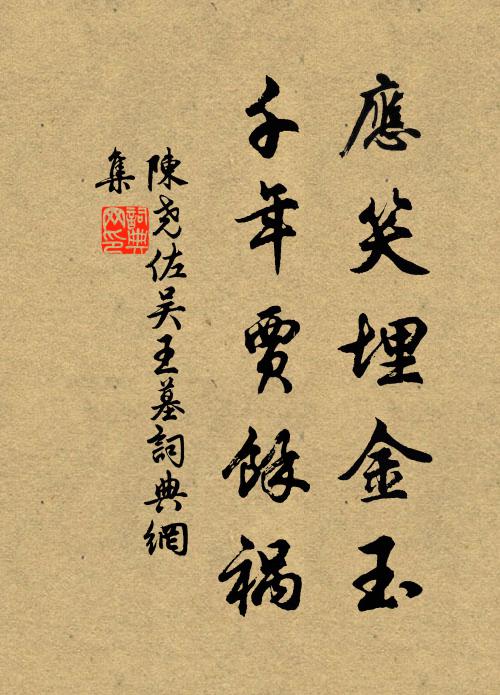 應笑埋金玉
千年賈餘禍
陳堯佐吴王墓詞典網
集
詞典
网印